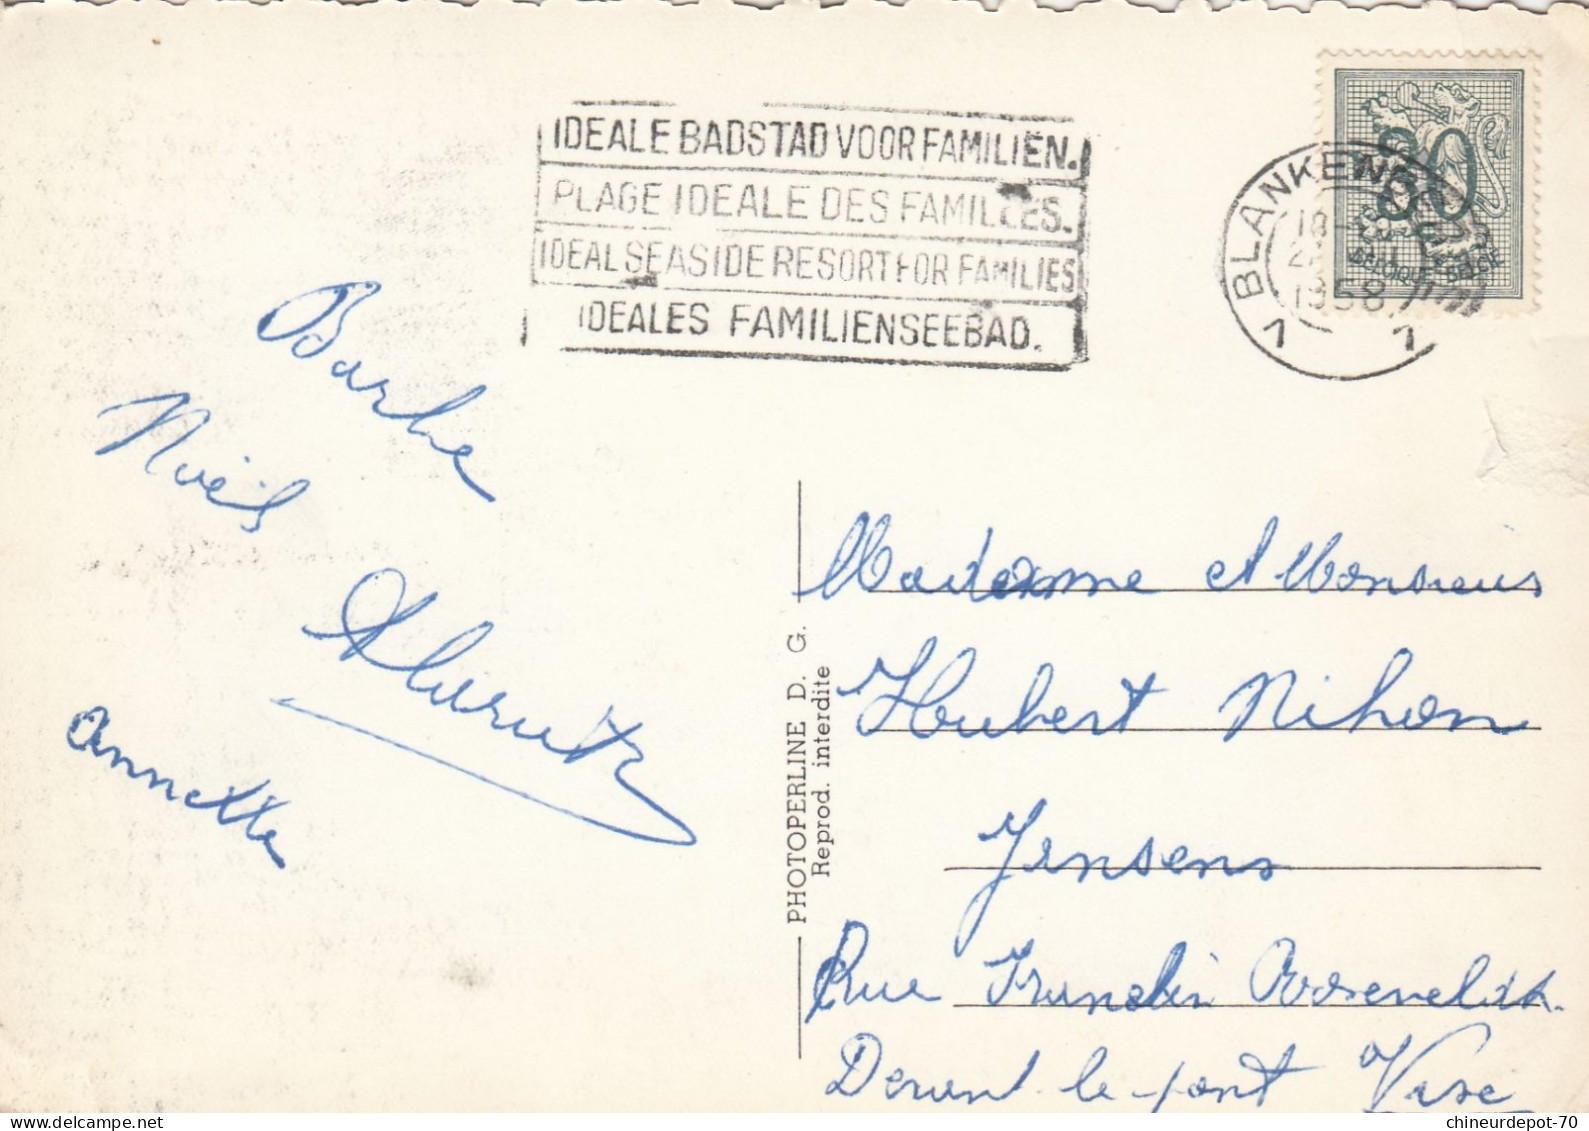 IDEALE BADSTAD VOOR FAMILIËN.
PLAGE IDEALE DES FAMILLES.
IDEAL SEASIDE RESORT FOR FAMILIES
IDEALES FAMILIENSEEBAD.
BLANKENBERGE
1958
1 1
80
BELGIQUE-BELGIE
Barbe
Noël
Annette
PHOTOPERLINE D. G.
Reprod. interdite
Madame et Monsieur
Hubert Nihon
Jensens
Rue Franclin Rooseveldt
Devant le pont Visé
chineurdepot-70